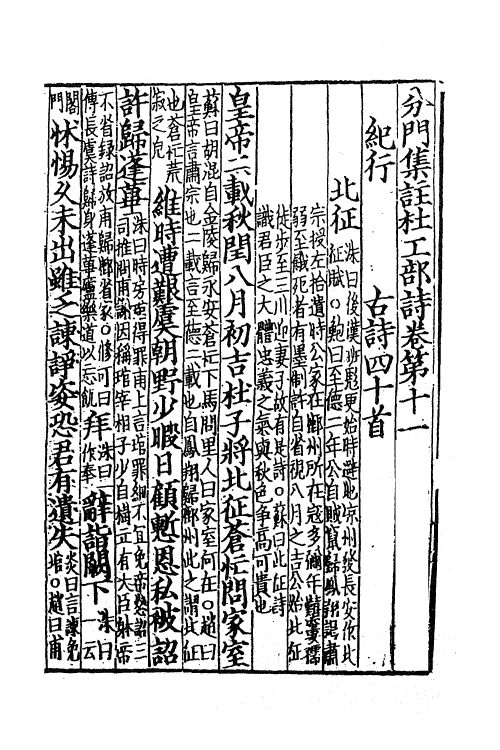 分門集註杜工部詩卷第十一
紀行　古詩四十首
北征　洙曰後漢班彪更始時避地涼州發長安作北
征賦○鮑曰至德二年公自賊竄歸鳳翔謁肅
宗授左拾遺時公家在鄜州所在寇多彌年艱窶孺
弱至餓死者有墨制許自省視八月之吉公始北征
徒步至三川迎妻子故有是詩○蘇曰北征詩
識君臣之大體忠義之氣與秋色爭高可貴也
皇帝二載秋閏八月初吉杜子將北征蒼茫問家室
蘇曰胡混自金陵歸永安蒼茫下馬問里人曰家室何在○趙曰
皇帝言肅宗也二載言至德二載也自鳳翔歸鄜州此之謂北征
也蒼茫荒
寂之皃
維時遭艱虞朝野少暇日顧慙恩私被詔
許歸蓬蓽
洙曰時房琯得罪甫上言琯罪細不宜免帝怒詔三
司推問甫謝因稱琯宰相子少自樹立有大臣體帝
不省録詔放甫歸鄜省家○修可曰
傳長虞詩歸身蓬蓽廬樂道以忘飢
拜
洙曰一
作奉
辭詣闕下
洙曰
一云
閤
門
怵惕久未出雖乏諫諍姿恐君有遺失
炎曰言諫免
琯○趙曰甫